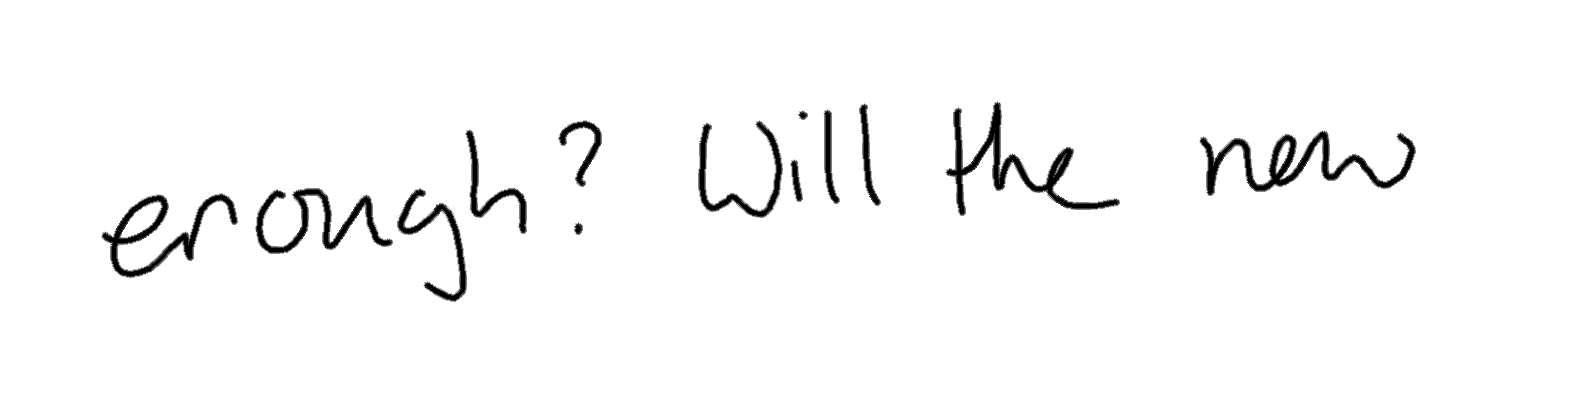 enough? Will the new